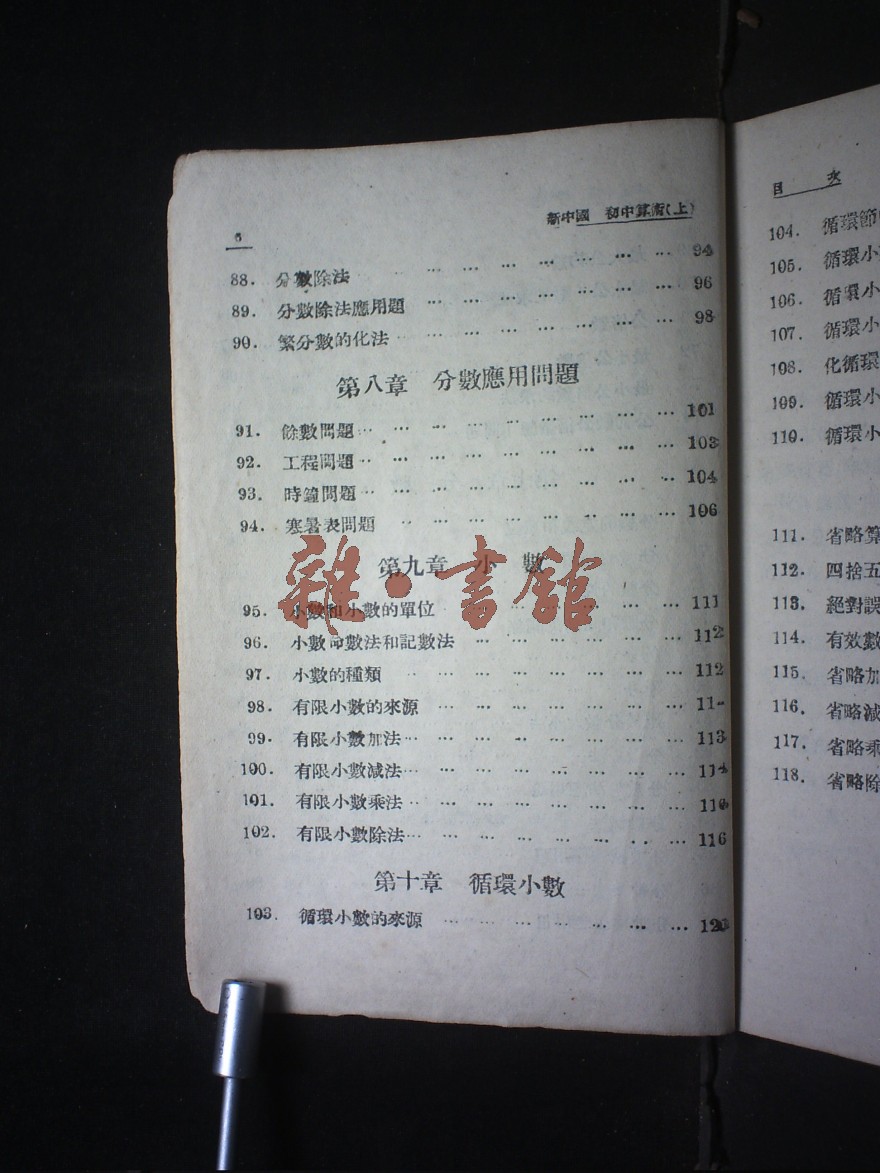 6
新中國 初中算術(上)
88. 分數除法 … … … … … … … 94
89. 分數除法應用題 … … … … … … … 96
90. 繁分數的化法 … … … … … … … 98
第八章 分數應用問題
91. 餘數問題 … … … … … … … … 101
92. 工程問題 … … … … … … … … 103
93. 時鐘問題 … … … … … … … … 104
94. 寒暑表問題 … … … … … … … 106
第九章 小 數
95. 小數和小數的單位 … … … … … … 111
96. 小數命數法和記數法 … … … … … … 112
97. 小數的種類 … … … … … … … 112
98. 有限小數的來源 … … … … … … … 11
99. 有限小數加法 … … … … … … … 113
100. 有限小數減法 … … … … … … … 114
101. 有限小數乘法 … … … … … … … 11
102. 有限小數除法 … … … … … … … 116
第十章 循環小數
103. 循環小數的來源 … … … … … … … 120
雜·書館
目 次
104. 循環節
105. 循環小
106. 循環小
107. 循環小
108. 化循環
109. 循環小
110. 循環小
111. 省略算
112. 四捨五
113. 絕對誤
114. 有效數
115. 省略加
116. 省略減
117. 省略乘
118. 省略除